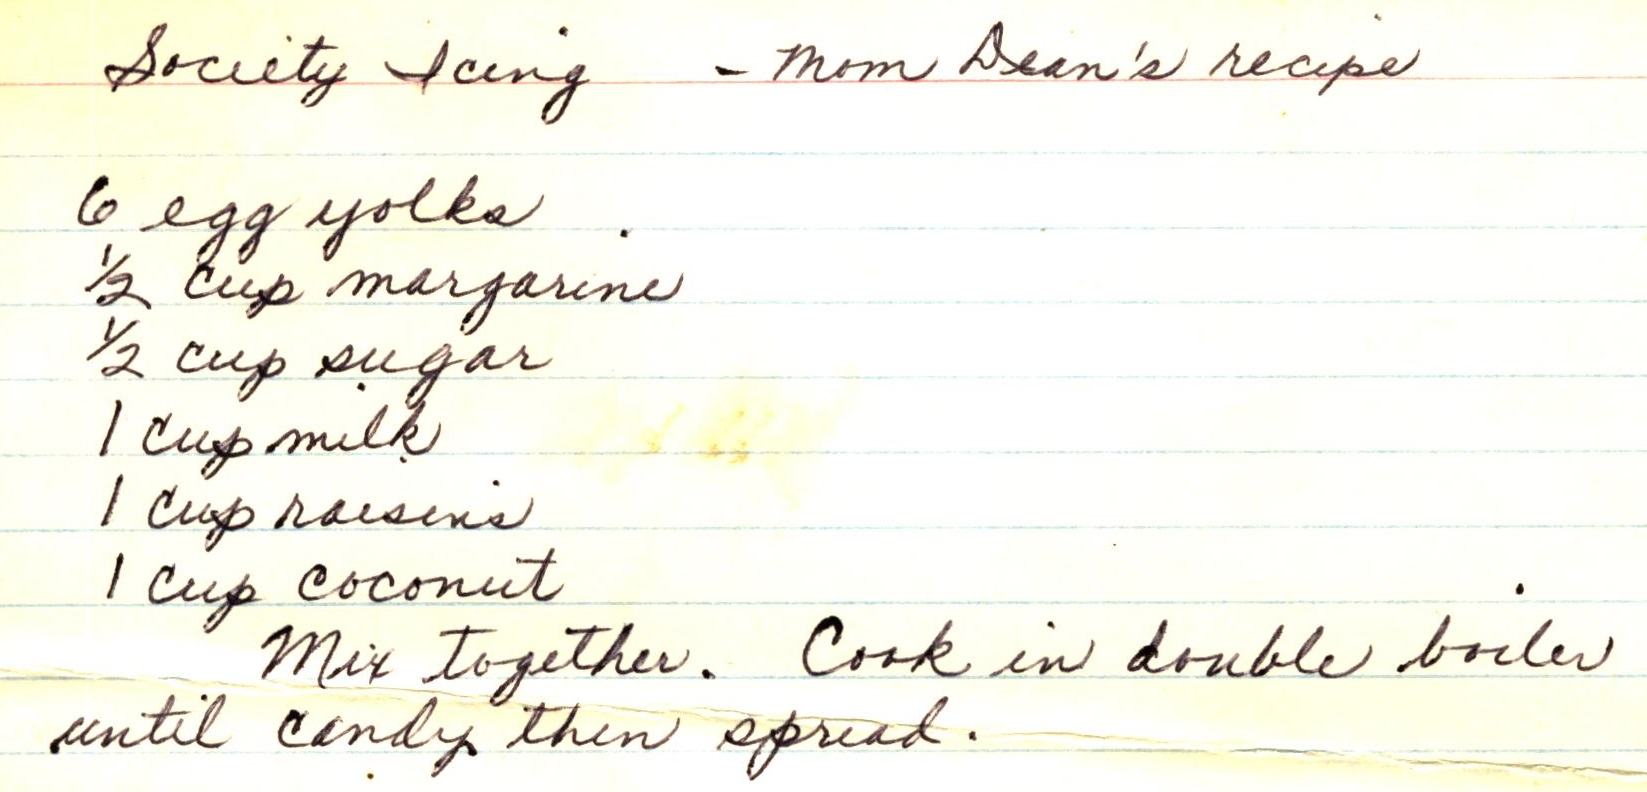 Society Icing - Mom Dean's recipe
6 egg yolks
1/2 cup margarine
1/2 cup sugar
1 cup milk
1 cup raisins
1 cup coconut
Mix together. Cook in double boiler
until candy then spread.